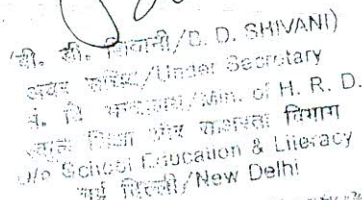 (बी. डी. शिवानी/B. D. SHIVANI)
अवर सचिव/Under Secretary
मं. वि मन्त्रालय/Min. of H. R. D.
स्कूल शिक्षा और साक्षरता विभाग
D/o School Education & Literacy
नई दिल्ली/New Delhi